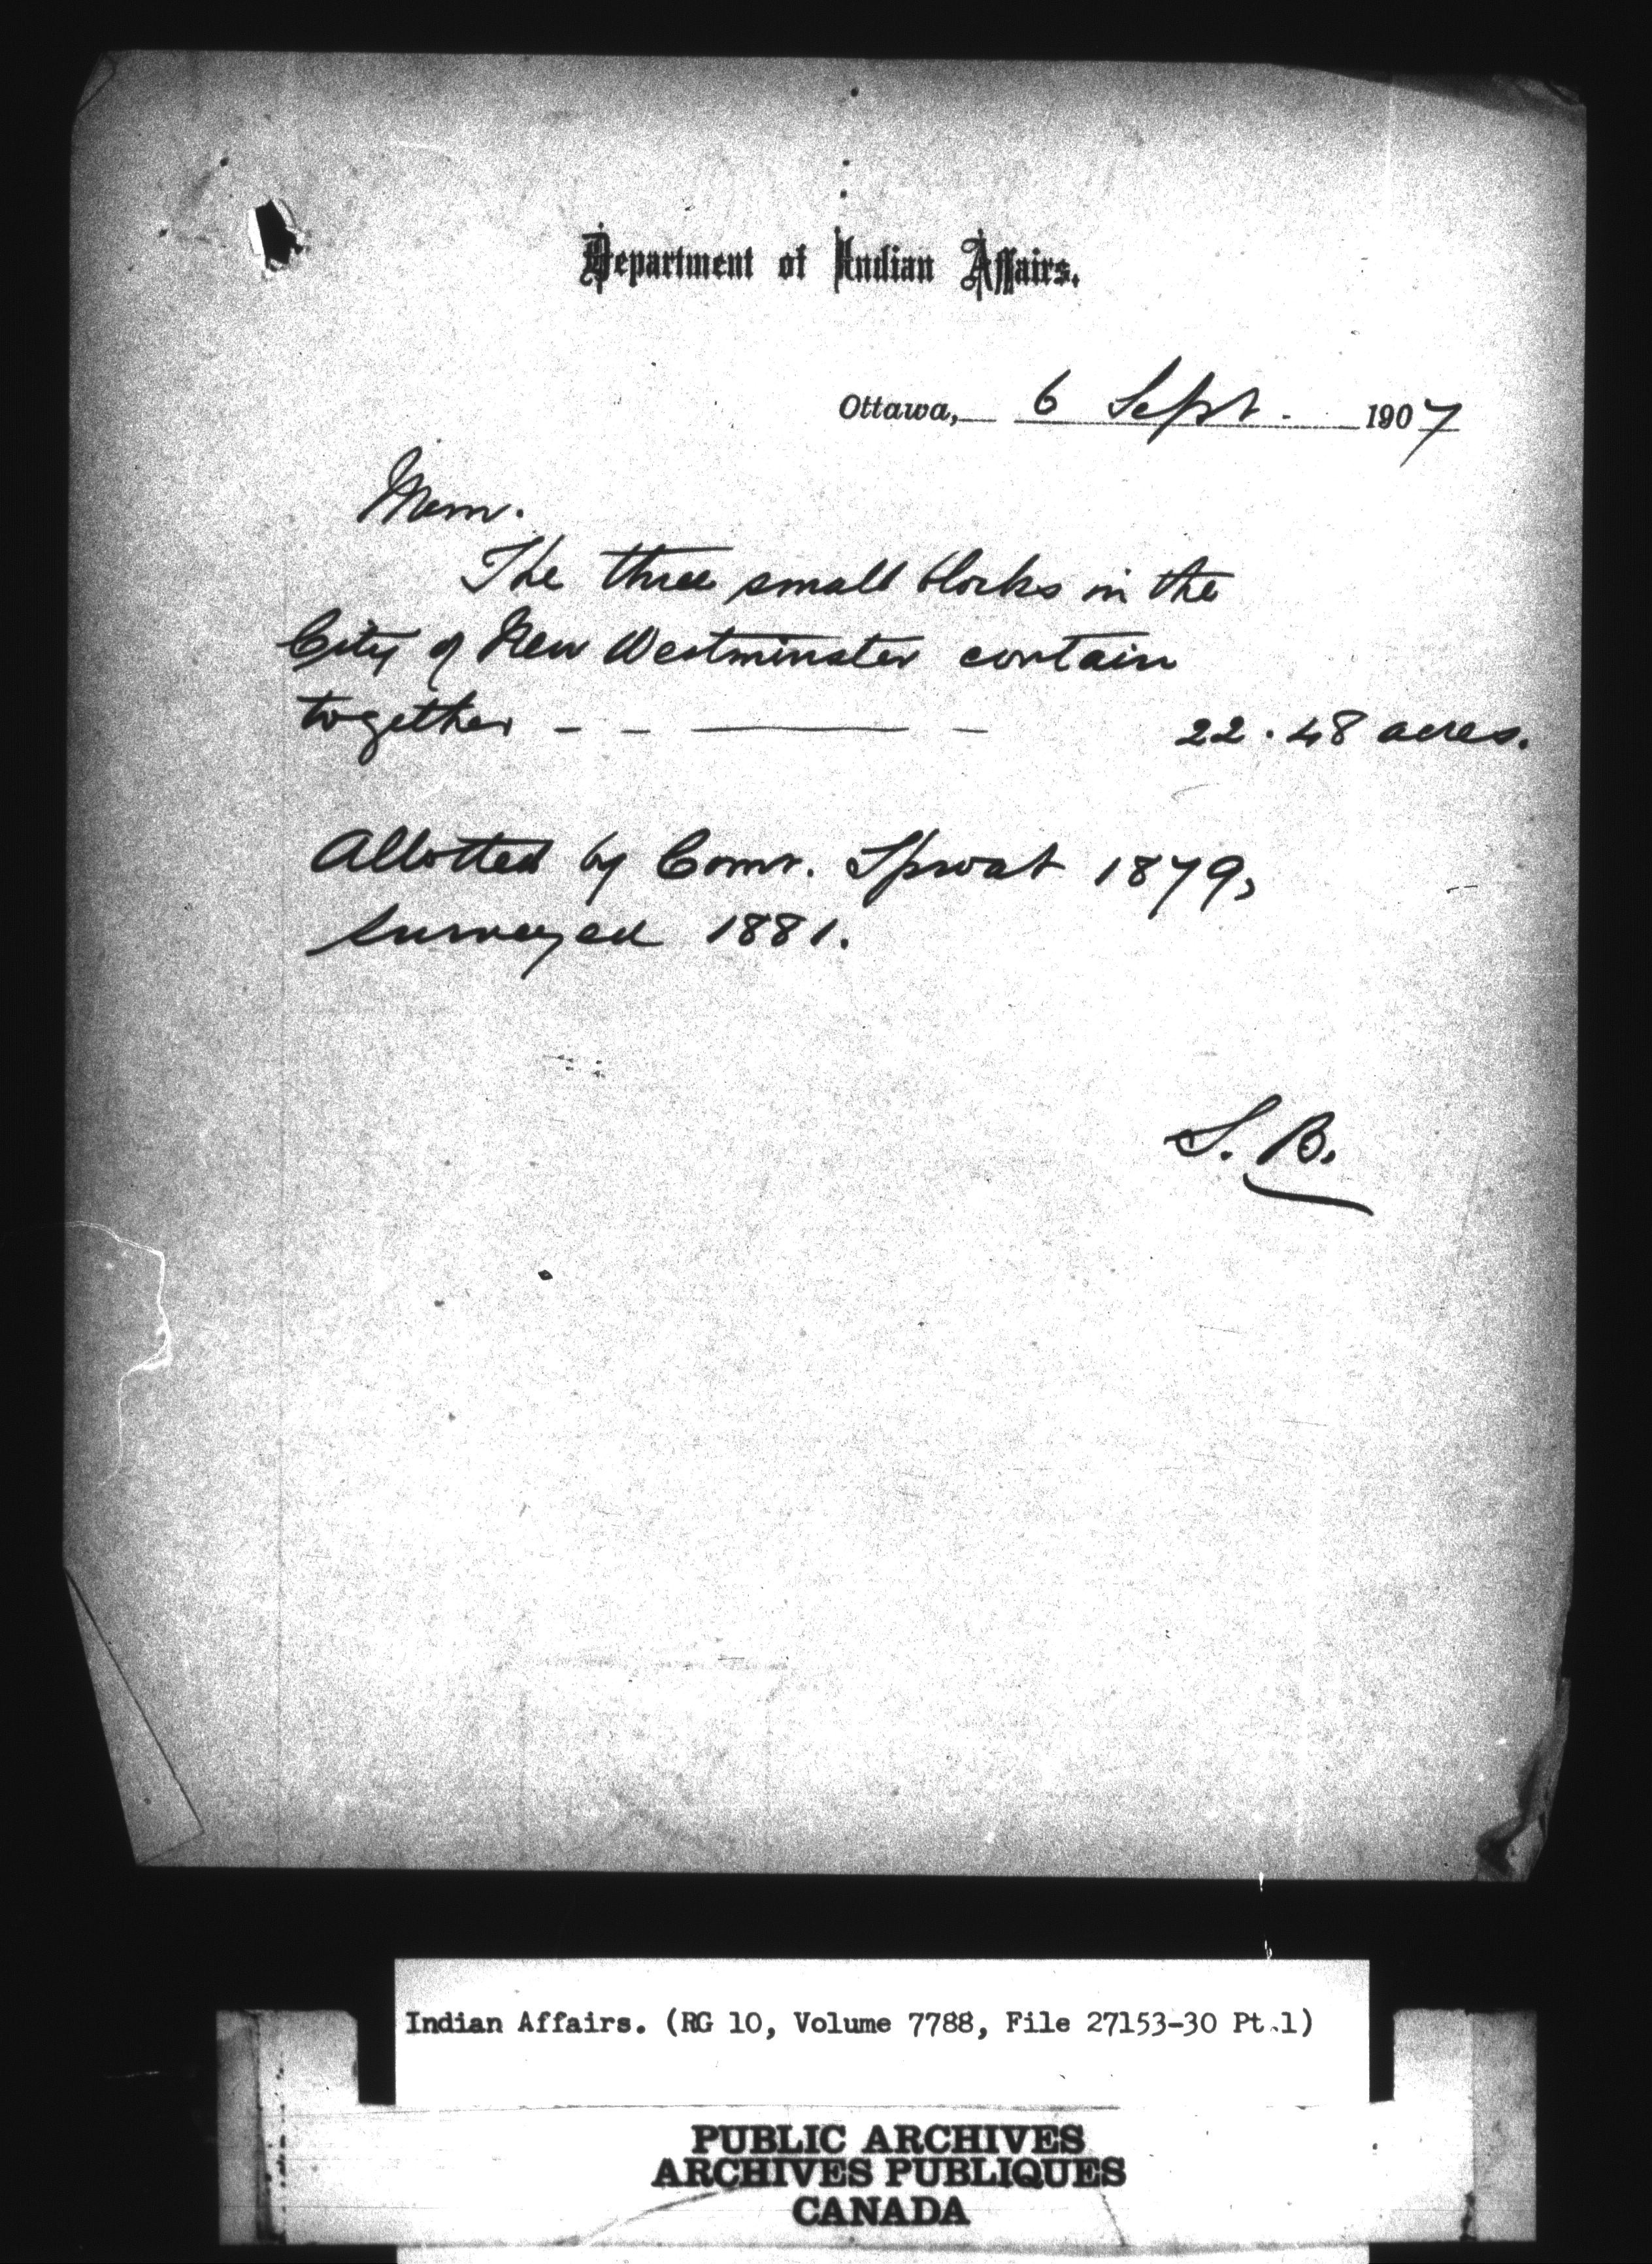 Department of Indian Affairs.
Ottawa, 6 Sept. 1907
Mem.
The three small blocks in the
City of New Westminster contain
together - - ——— - 22.48 acres.
Allotted by Comr. Sproat 1879,
surveyed 1881.
S. B.
Indian Affairs. (RG 10, Volume 7788, File 27153-30 Pt.1)
PUBLIC ARCHIVES
ARCHIVES PUBLIQUES
CANADA